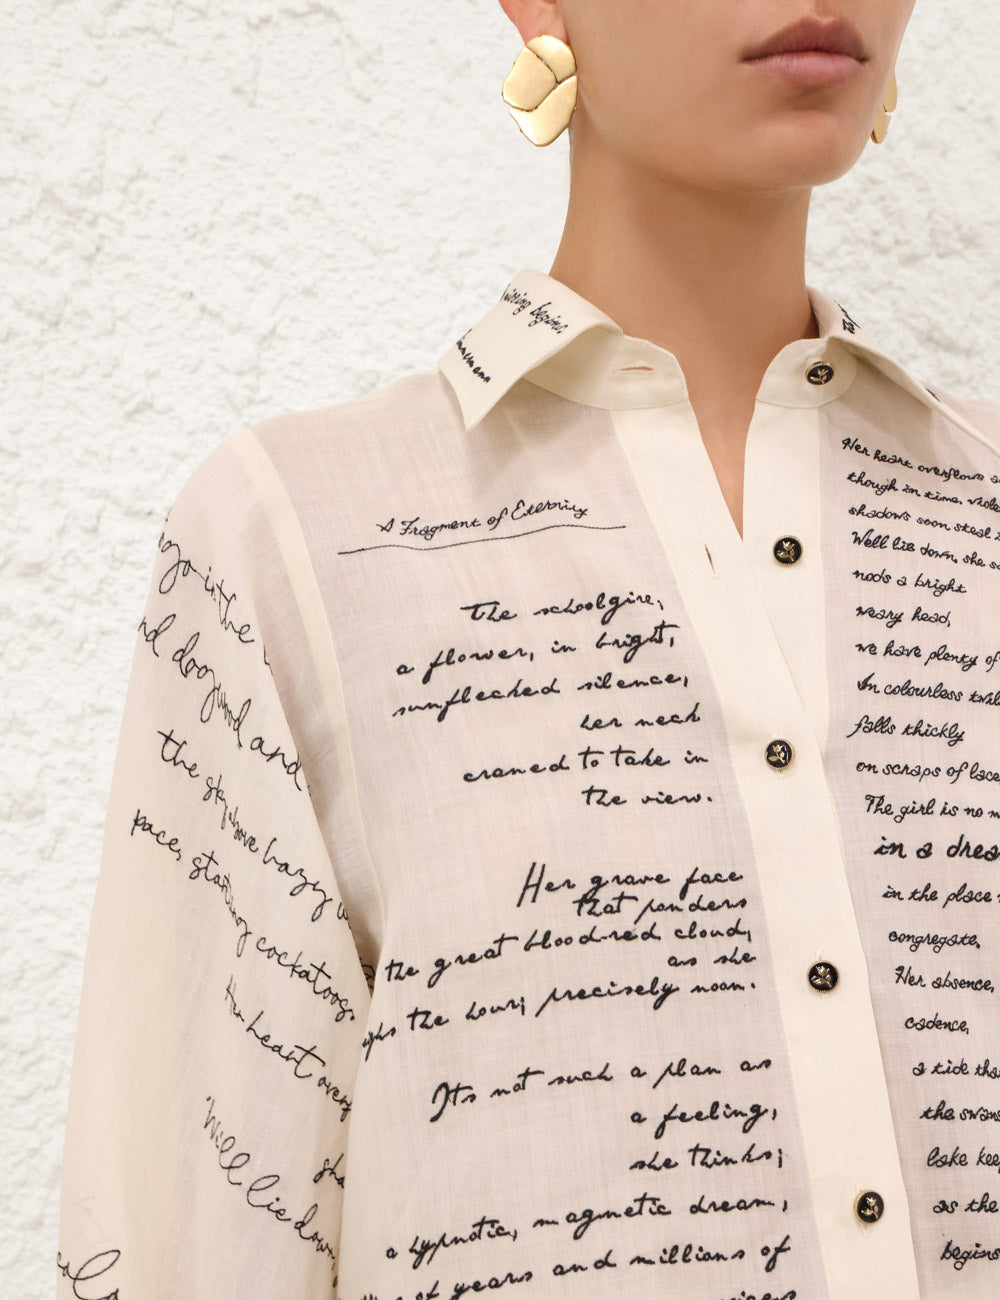 writing begins.
A Fragment of Eternity
The schoolgirl,
a flower, in bright,
sunflecked silence,
her neck
craned to take in
the view.
Her grave face
that ponders
the great blood-red cloud,
as she
the hour; precisely noon.
Its not such a plan as
a feeling,
she thinks;
a hypnotic, magnetic dream,
of years and millions of
in the
nd dogwood and
the sky above hazy
paces, startling cockatoos.
Her heart over
Well lie down,
Her heart overflows
though in time,
shadows soon steal
Well lie down, she
nods a bright
weary head,
we have plenty of
In colourless
falls thickly
on scraps of lace
The girl is no
in a
in the place
congregate.
Her absence,
cadence,
a tide
the
lake
as the
begins